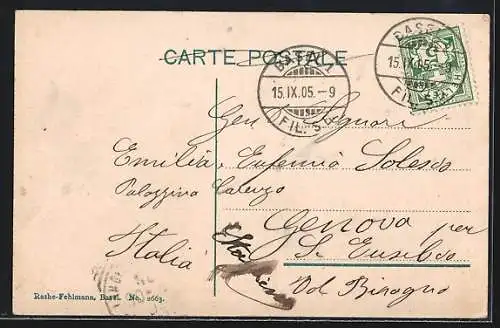 CARTE POSTALE
BASEL 1
15.IX.05.-9
FIL. S.B.
BASEL
15.IX.05.-9
FIL. S.B.
Gen Signore
Emilia, Eufemia
Palazzina
Genova per
Italia
S. Eusebio
Val Bisagno
Rathe-Fehlmann, Basel. No. 2663.